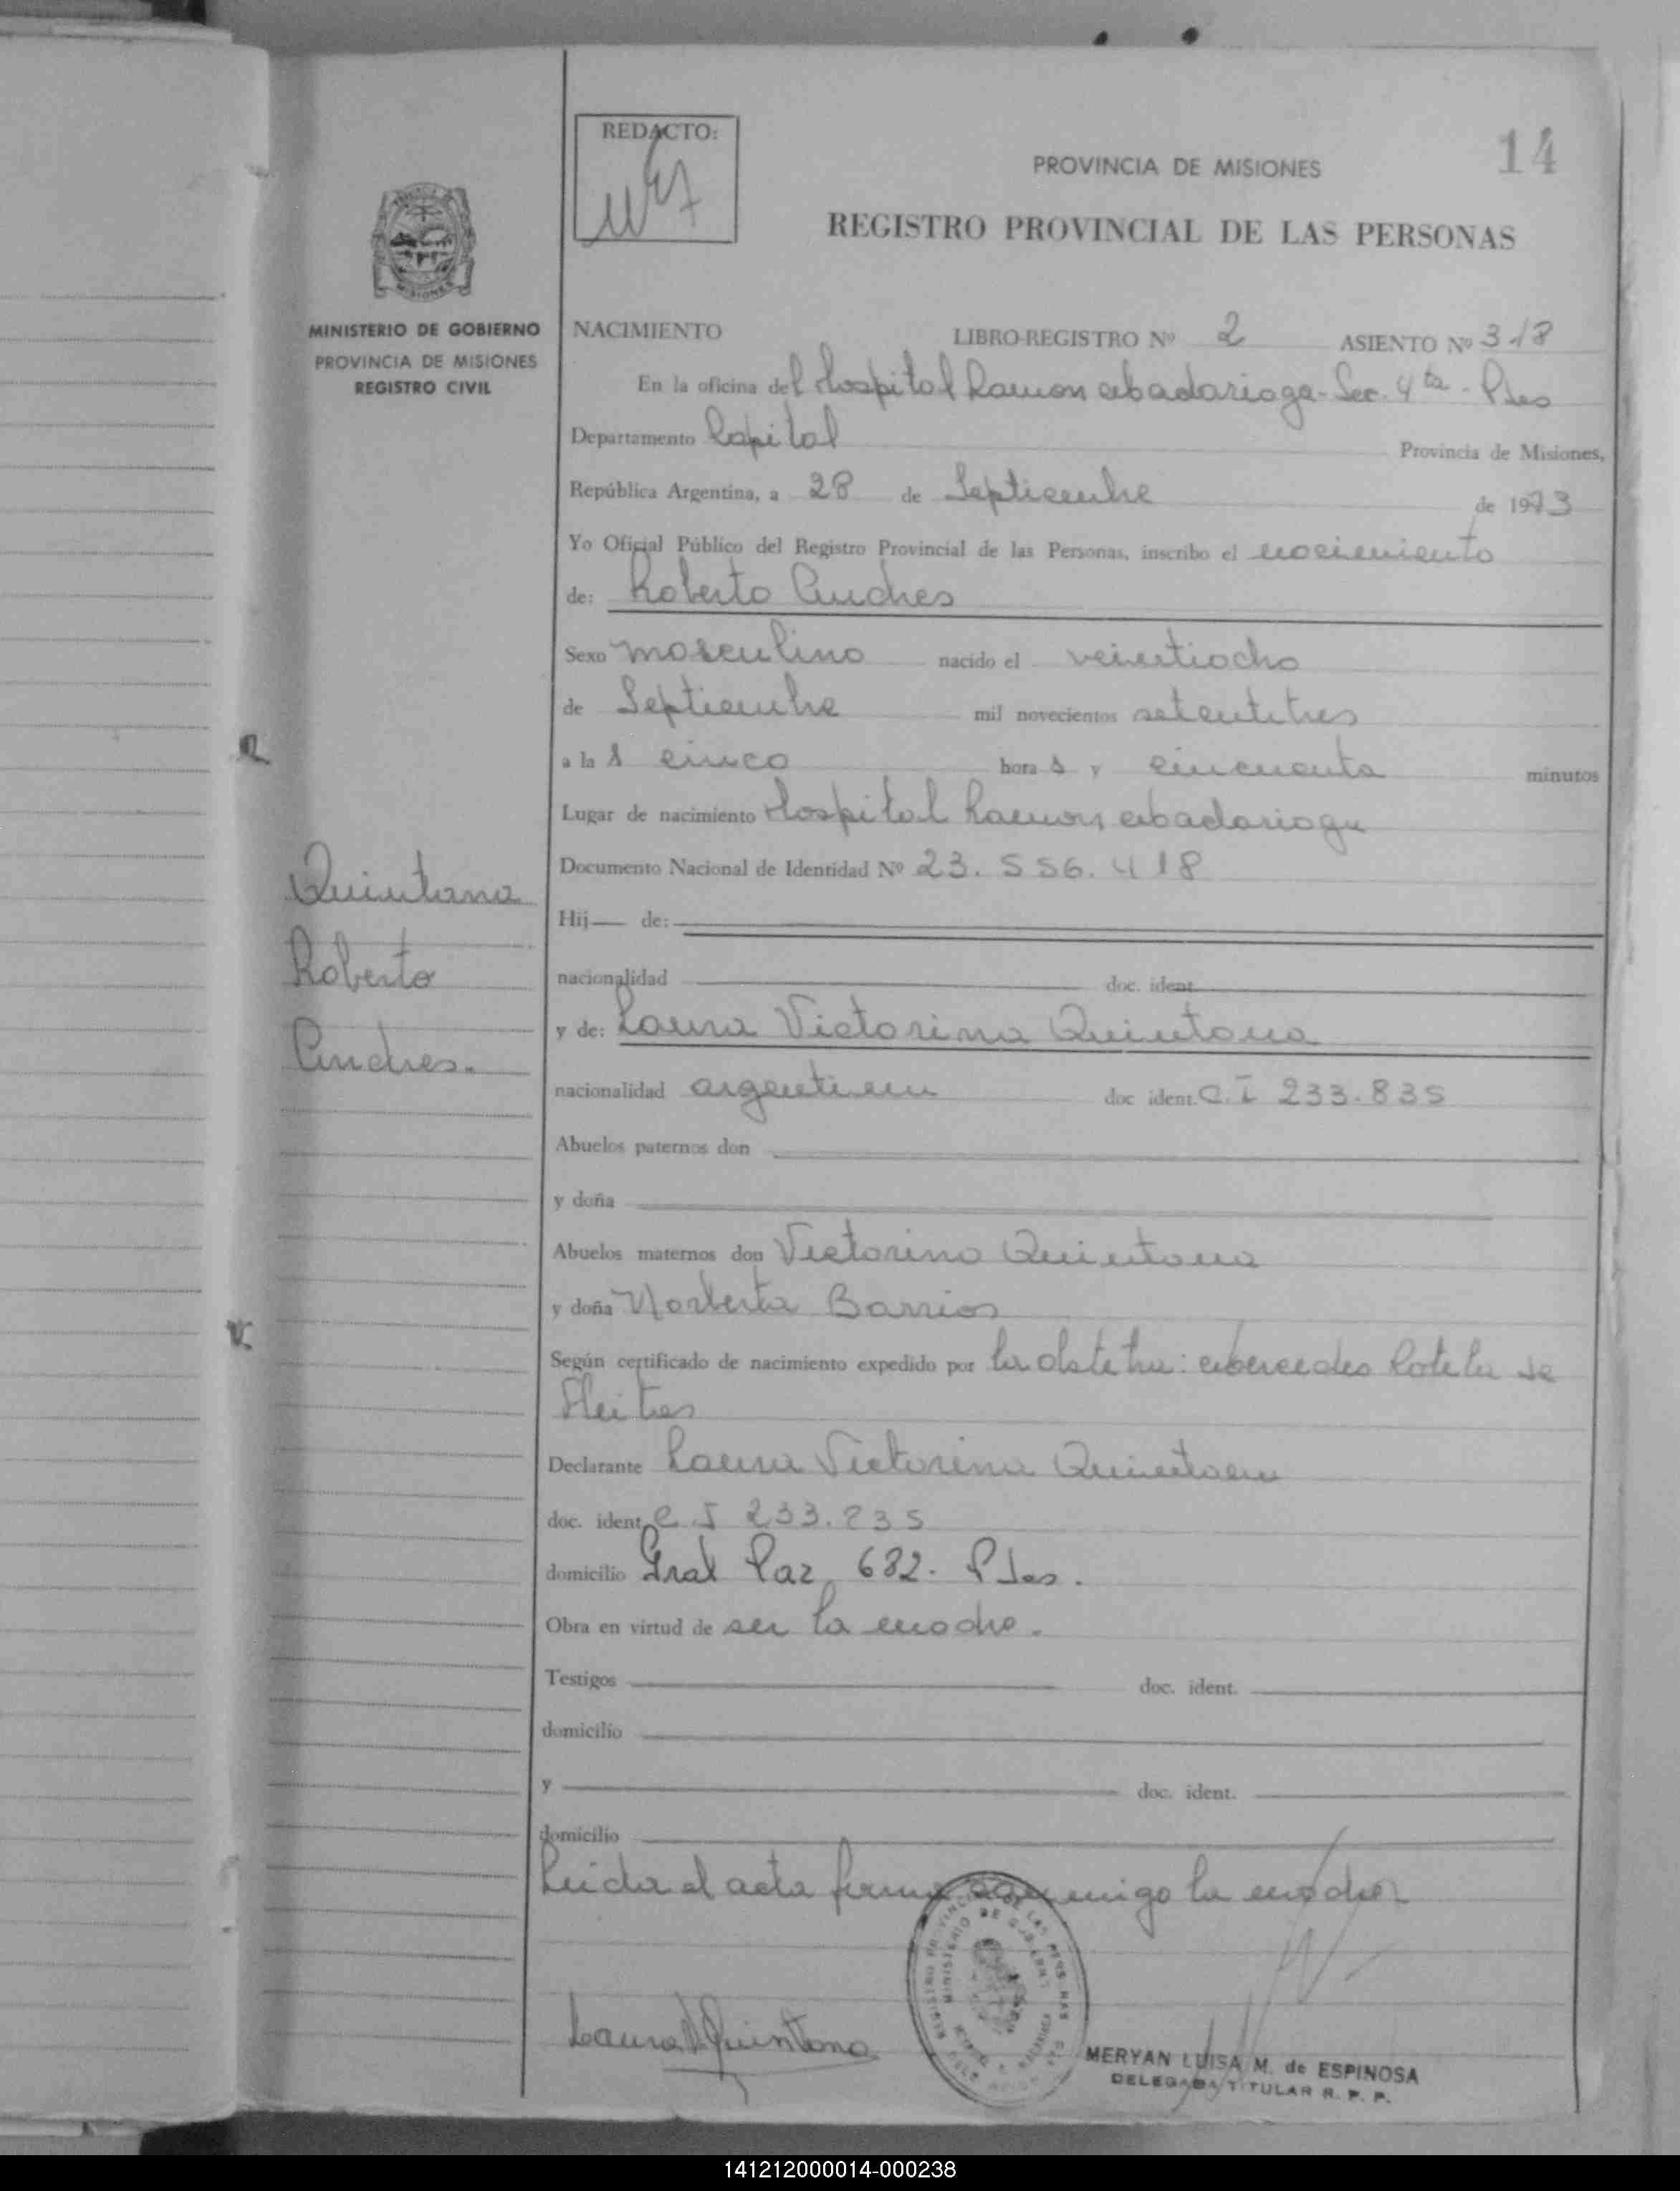 REDACTO:
14
PROVINCIA DE MISIONES
REGISTRO PROVINCIAL DE LAS PERSONAS
MISIONES
MINISTERIO DE GOBIERNO
PROVINCIA DE MISIONES
REGISTRO CIVIL
NACIMIENTO LIBRO-REGISTRO Nº 2 ASIENTO Nº 318
En la oficina del Hospital Ramon Abadarioga - Sec. 4ta - Pdas
Departamento Capital Provincia de Misiones,
República Argentina, a 28 de Septiembre de 1973
Yo Oficial Público del Registro Provincial de las Personas, inscribo el nacimiento
de: Roberto Andres
Sexo masculino nacido el veintiocho
de Septiembre mil novecientos setentitres
a la s cinco hora s y cincuenta minutos
Lugar de nacimiento Hospital Ramon Abadarioga
Documento Nacional de Identidad Nº 23.556.418
Hij de:
nacionalidad doc. ident.
y de: Laura Victorina Quintana
nacionalidad argentina doc ident. C.I 233.835
Abuelos paternos don
y doña
Abuelos maternos don Victorino Quintana
y doña Norberta Barrios
Según certificado de nacimiento expedido por la obstetra: Mercedes Rotela de
Fleitas
Declarante Laura Victorina Quintana
doc. ident. C I 233.835
domicilio Gral Paz 682. Pdas.
Obra en virtud de ser la madre.
Testigos doc. ident.
domicilio
y doc. ident.
domicilio
Leida el acta firma conmigo la madre
Quintana
Roberto
Andres.
Laura V Quintana
MERYAN LUISA M. de ESPINOSA
DELEGADA TITULAR R. P. P.
141212000014-000238